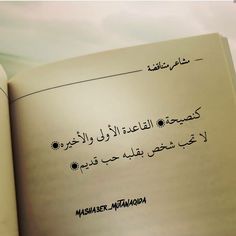 مشاعر متناقضة
كنصيحة◉ القاعدة الأولى والأخيره◉
لا تحب شخص بقلبه حب قديم◉
MASHA3ER_MOTANAQIDA